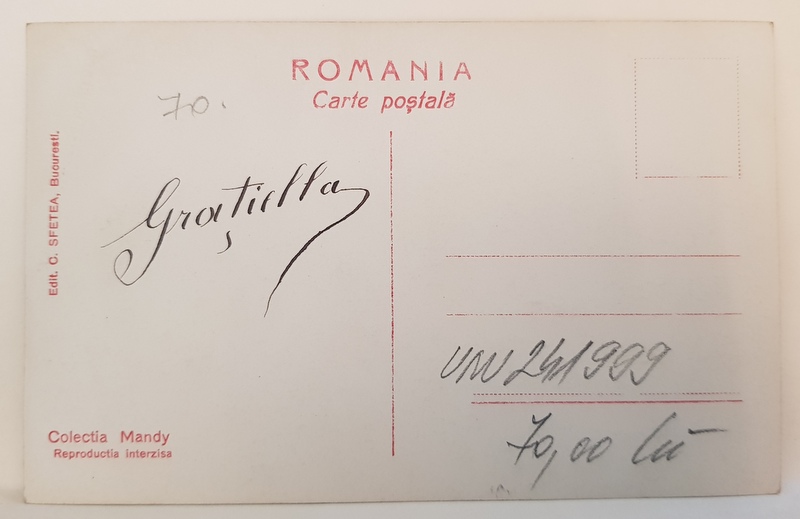 ROMANIA
Carte poștală
70.
Edit. C. SFETEA, Bucuresti.
Grațiella
241999
70,00 Lei
Colectia Mandy
Reproductia interzisa